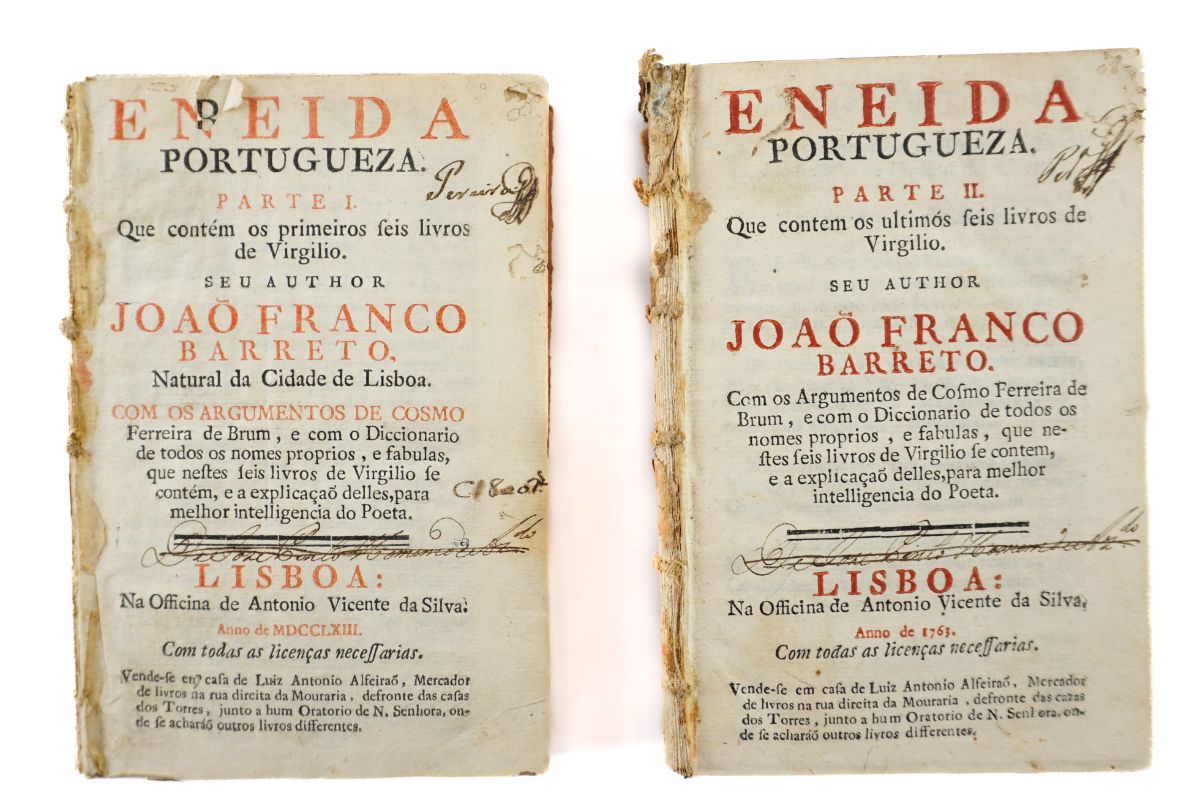 ENEIDA
PORTUGUEZA.
PARTE I.
Que contém os primeiros ſeis livros
de Virgilio.
SEU AUTHOR
JOAÕ FRANCO
BARRETO,
Natural da Cidade de Lisboa.
COM OS ARGUMENTOS DE COSMO
Ferreira de Brum, e com o Diccionario
de todos os nomes proprios, e fabulas,
que neſtes ſeis livros de Virgilio ſe
contém, e a explicaçaõ delles, para
melhor intelligencia do Poeta.
LISBOA:
Na Officina de Antonio Vicente da Silva.
Anno de MDCCLXIII.
Com todas as licenças neceſſarias.
Vende-ſe em caſa de Luiz Antonio Alfeiraõ, Mercador
de livros na rua direita da Mouraria, defronte das caſas
dos Torres, junto a hum Oratorio de N. Senhora, on-
de ſe acharáõ outros livros differentes.
Pereira
ENEIDA
PORTUGUEZA.
PARTE II.
Que contem os ultimós ſeis livros de
Virgilio.
SEU AUTHOR
JOAÕ FRANCO
BARRETO.
Com os Argumentos de Coſmo Ferreira de
Brum, e com o Diccionario de todos os
nomes proprios, e fabulas, que ne-
ſtes ſeis livros de Virgilio ſe contem,
e a explicaçaõ delles, para melhor
intelligencia do Poeta.
LISBOA:
Na Officina de Antonio Vicente da Silva,
Anno de 1763.
Com todas as licenças neceſſarias.
Vende-ſe em caſa de Luiz Antonio Alfeiraõ, Mercador
de livros na rua direita da Mouraria, defronte das cazas
dos Torres, junto a hum Oratorio de N. Senhora, on-
de ſe acharáõ outros livros differentes.